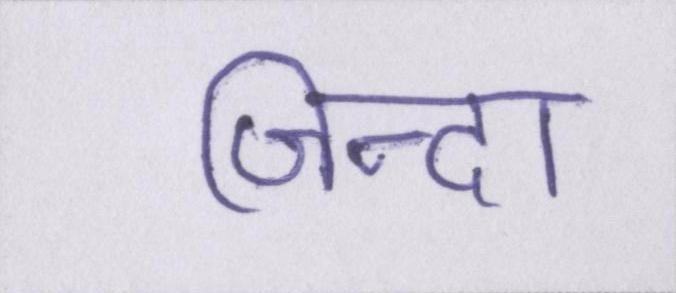 जिन्दा